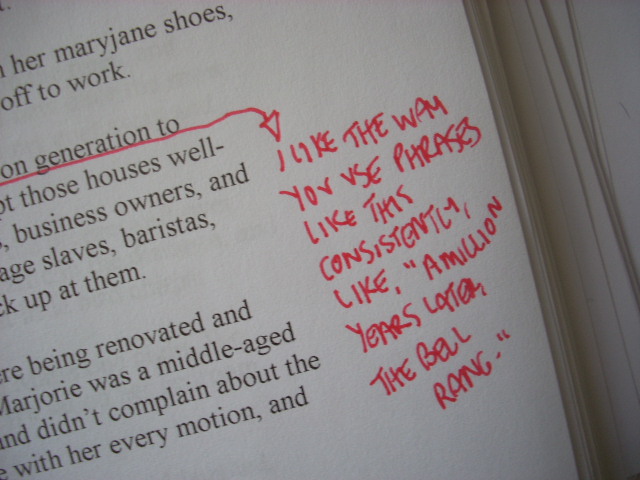 her maryjane shoes,
off to work.
on generation to
those houses well-
business owners, and
age slaves, baristas,
ck up at them.
re being renovated and
Marjorie was a middle-aged
and didn't complain about the
with her every motion, and
I LIKE THE WAY
YOU USE PHRASES
LIKE THIS
CONSISTENTLY,
LIKE, "A MILLION
YEARS LATER,
THE BELL
RANG."